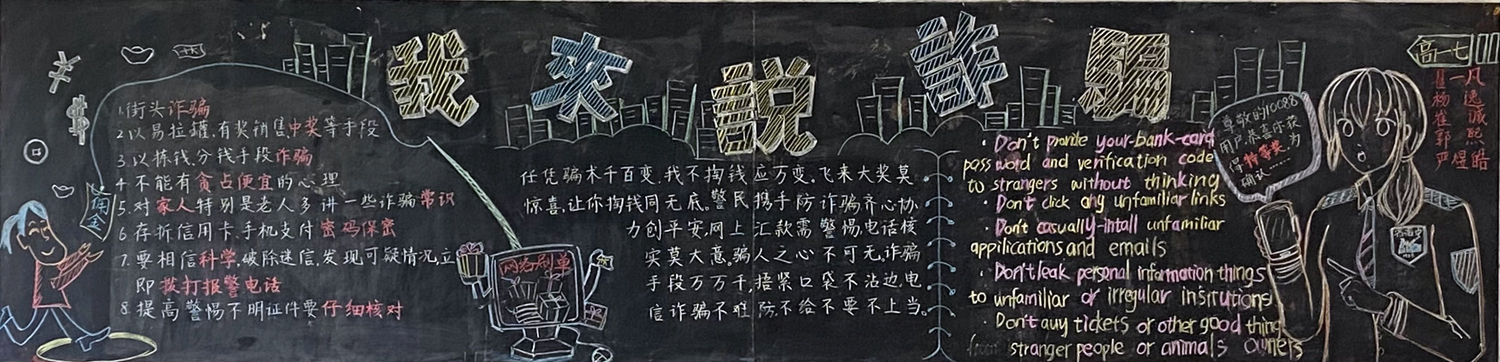 我来説詐騙
1.街头诈骗
2.以易拉罐、有奖销售中奖等手段
3.以拣钱、分钱手段诈骗
4.不能有贪占便宜的心理
5.对家人特别是老人多讲一些诈骗常识
6.存折信用卡、手机支付密码保密
7.要相信科学,破除迷信,发现可疑情况,立
即拨打报警电话
8.提高警惕不明证件要仔细核对
佣金
网络刷单
任凭骗术千百变,我不掏钱应万变。飞来大奖莫
惊喜,让你掏钱同无底。警民携手防诈骗齐心协
力创平安,网上汇款需警惕,电话核
实莫大意。骗人之心不可无,诈骗
手段万万千,捂紧口袋不沾边电
信诈骗不难防不给不要不上当。
· Don't provide your-bank-card
pass word and verification code
to strangers without thinking
· Don't click any unfamiliar links
· Don't casually-intall unfamiliar
applications and emails
· Don't leak personal information things
to unfamiliar or irregular insritutions
· Don't auy tickets or other good thing
from stranger people or animals owners
尊敬的10088
用户,恭喜你获
得特等奖为
确认……
高一七